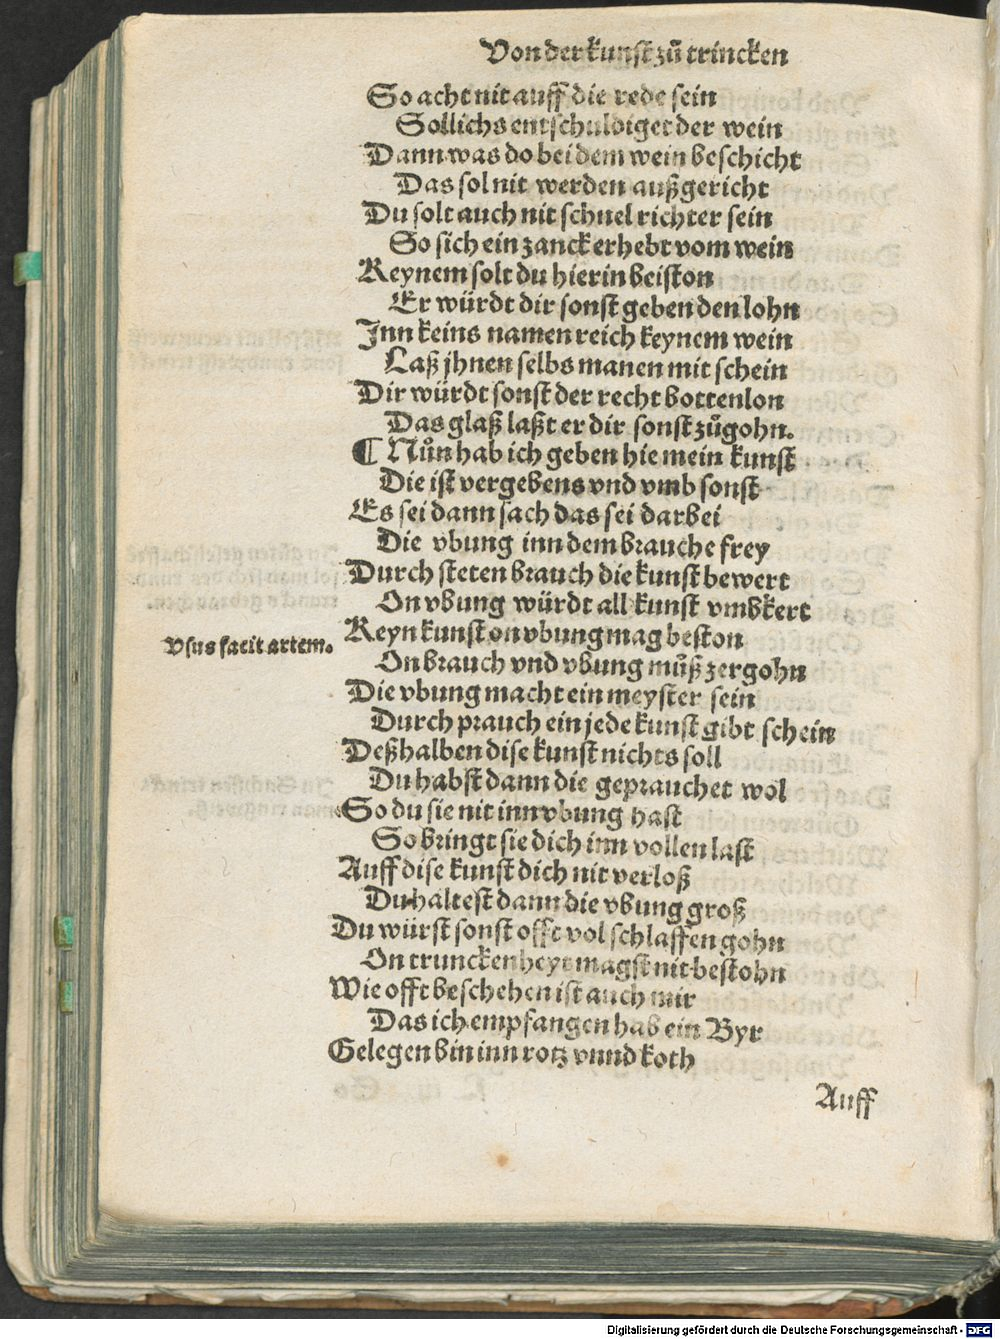 Von der kunst zů trincken
So acht nit auff die rede sein
Sollichs entschuldiget der wein
Dann was do bei dem wein beschicht
Das sol nit werden außgericht
Du solt auch nit schnel richter sein
So sich ein zanck erhebt vom wein
Keynem solt du hierin beiston
Er würdt dir sonst geben den lohn
Inn keins namen reich keynem wein
Laß jhnen selbs manen mit schein
Dir würdt sonst der recht bottenlon
Das glaß laßt er dir sonst zůgohn.
¶ Nůn hab ich geben hie mein kunst
Die ist vergebens vnd vmb sonst
Es sei dann sach das sei darbei
Die vbung inn dem brauche frey
Durch steten brauch die kunst bewert
On vbung würdt all kunst vmbkert
Vsus facit artem.
Keyn kunst on vbung mag beston
On brauch vnd vbung můß zergohn
Die vbung macht ein meyster sein
Durch prauch ein jede kunst gibt schein
Deßhalben dise kunst nichts soll
Du habst dann die geprauchet wol
So du sie nit inn vbung hast
So bringt sie dich inn vollen last
Auff dise kunst dich nit verloß
Du haltest dann die vbung groß
Du würst sonst offt vol schlaffen gohn
On trunckenheyt magst nit bestohn
Wie offt beschehen ist auch mir
Das ich empfangen hab ein Byr
Gelegen bin inn rotz vnnd koth
Auff
Digitalisierung gefördert durch die Deutsche Forschungsgemeinschaft - DFG